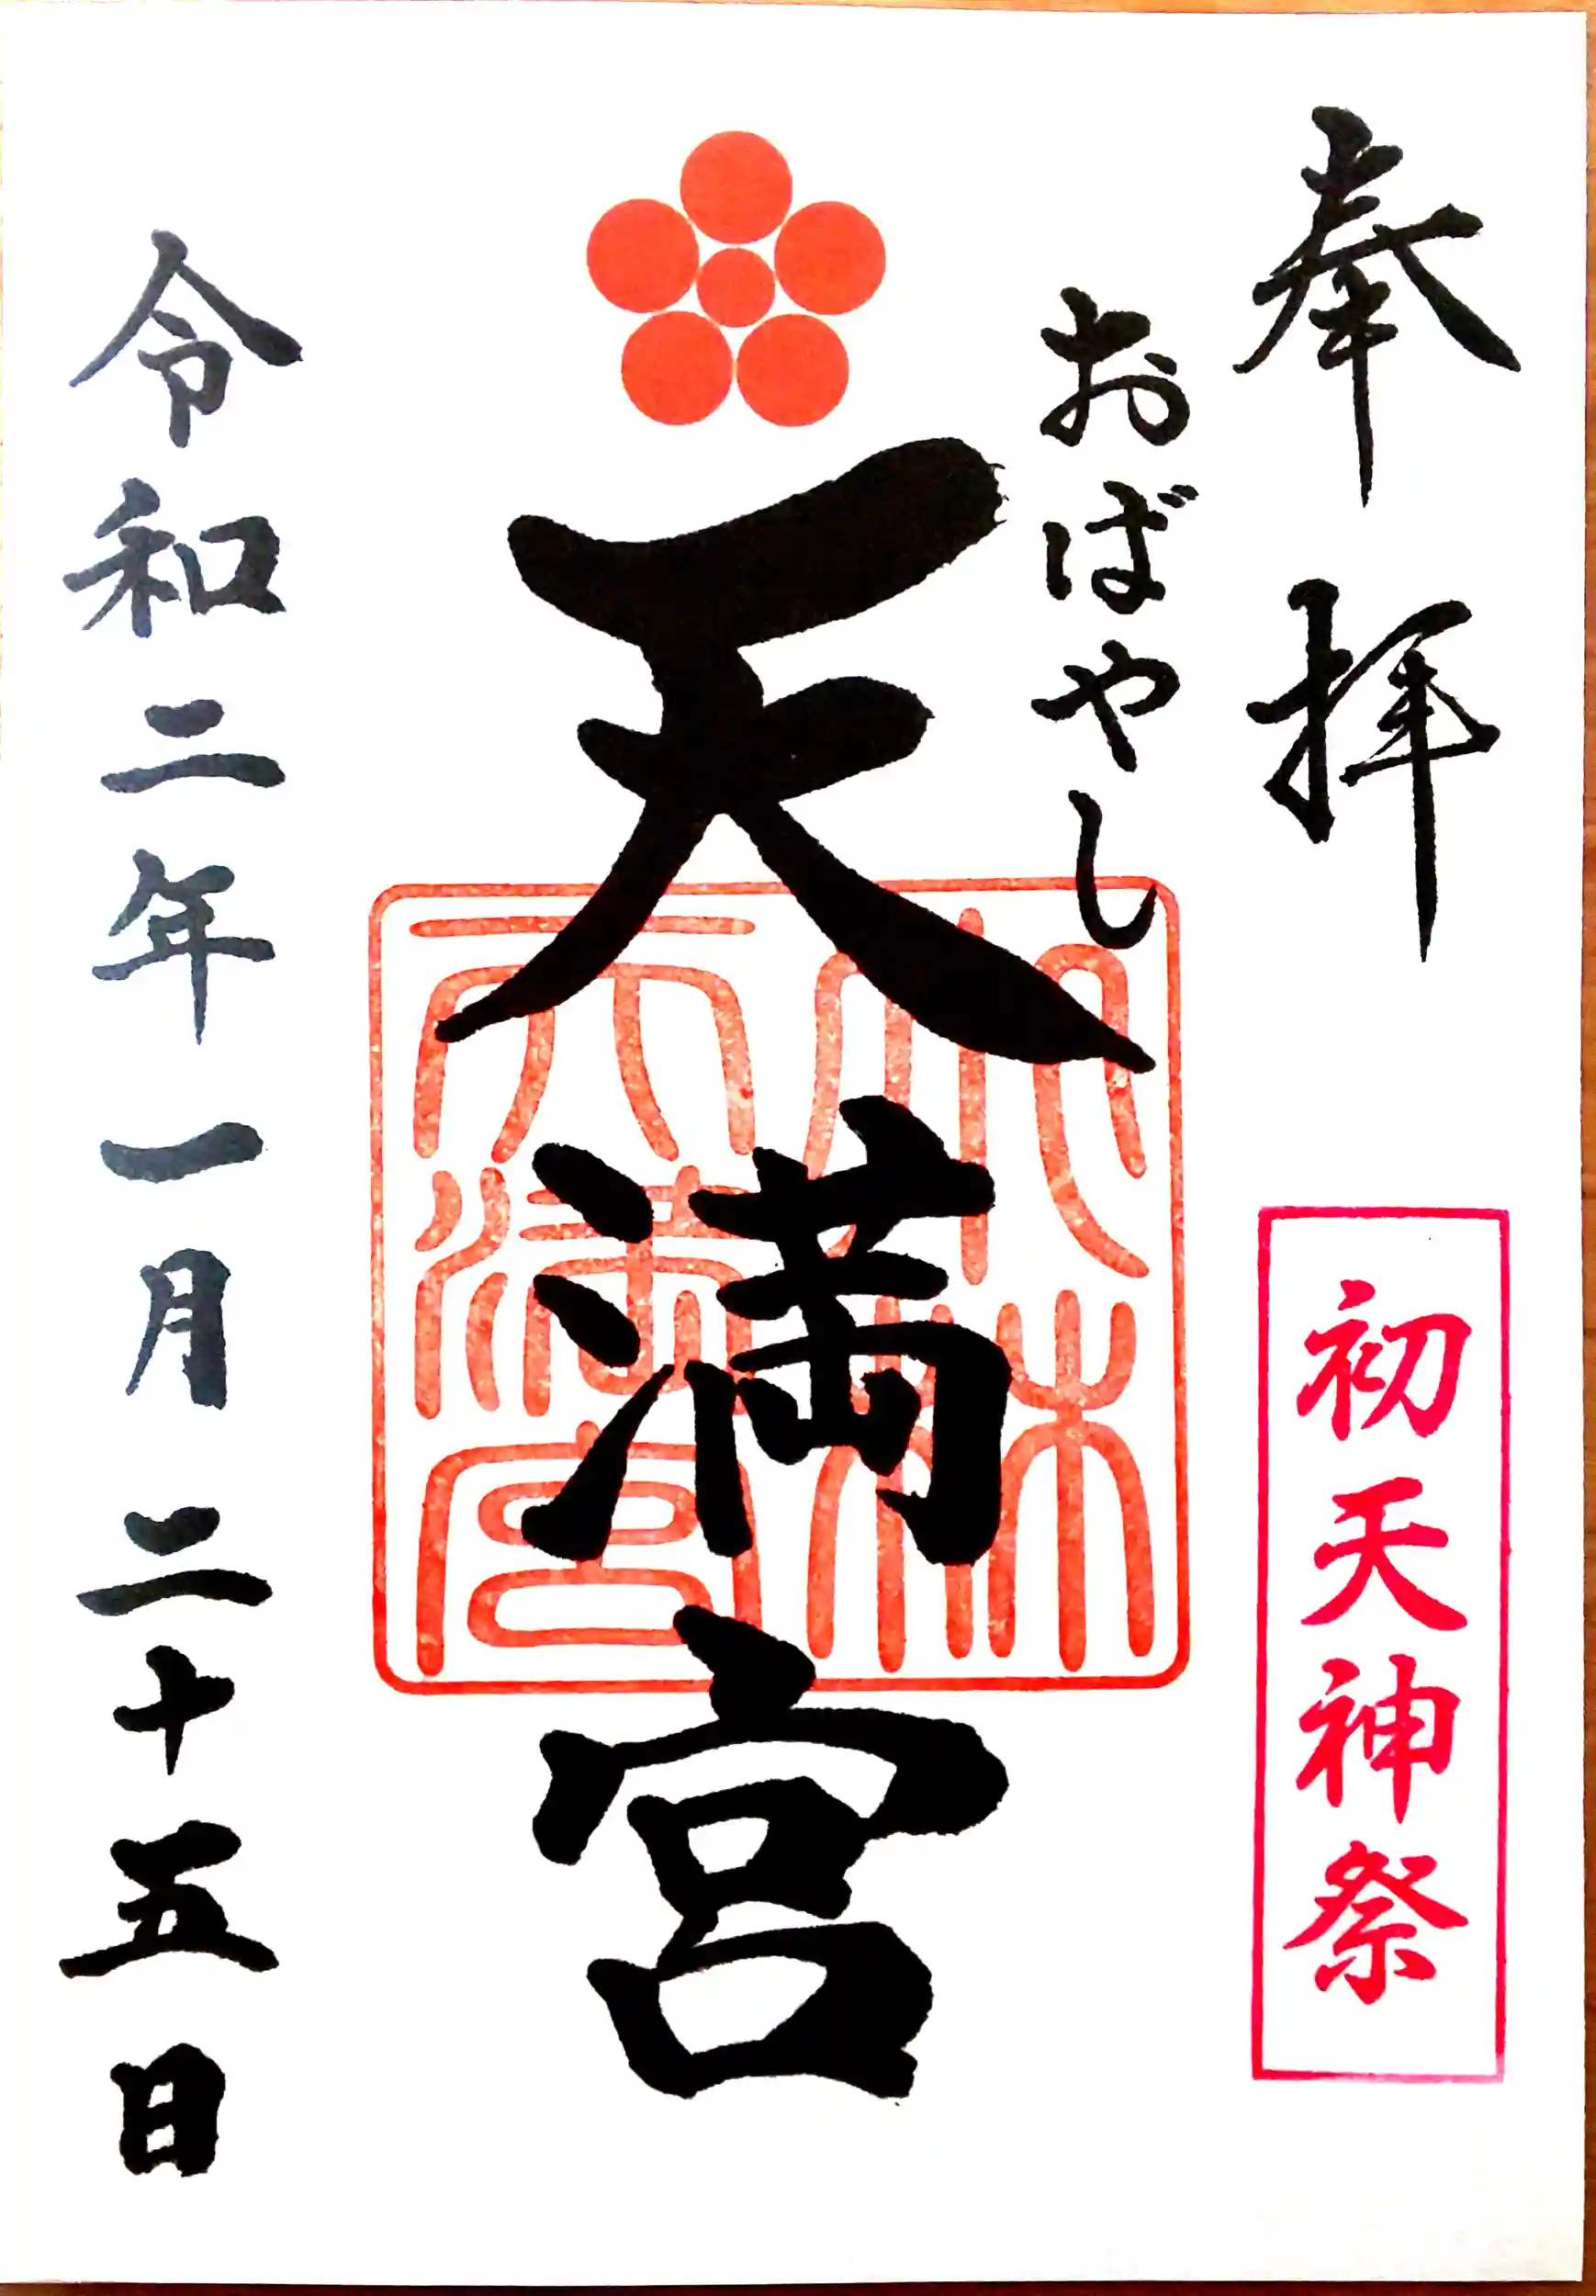 奉拝
初天神祭
おばやし
天満宮
小林天満宮
令和二年一月二十五日